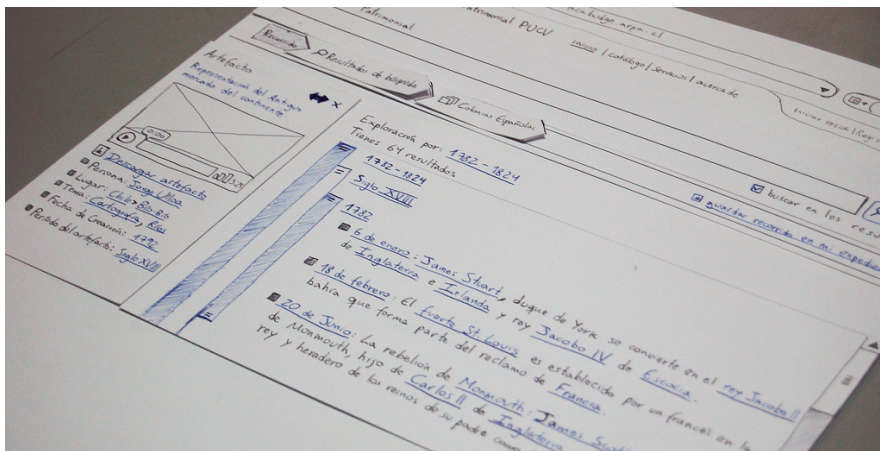 Patrimonial
Patrimonial PUCV
inicio | catálogo | Servicios | acerca de
Recuerdo
Resultados de búsqueda
Colonias Españolas
Artefacto
Representación del Antiguo
mercado del continente
X
0:00
Descargar artefacto
Persona: Jorge Ulloa
Lugar: Chile > Bío Bío
Tema: Cartografía, Ríos
Fecha de Creación: 1792
Período del artefacto: Siglo XVIII
Exploración por: 1782 - 1824
Tienes 64 resultados
buscar en los
guardar recorrido en mi
1782 - 1824
Siglo XVIII
1782
6 de enero: James Stuart, duque de York se convierte en el rey Jacobo II
de Inglaterra e Irlanda y rey Jacobo IV de Escocia.
18 de febrero: El fuerte St Louis es establecido por un francés en la
bahía que forma parte del reclamo de Francia.
20 de Junio: La rebelión de Monmouth: James
de Monmouth, hijo de Carlos II de Inglaterra
rey y heredero de los reinos de su padre